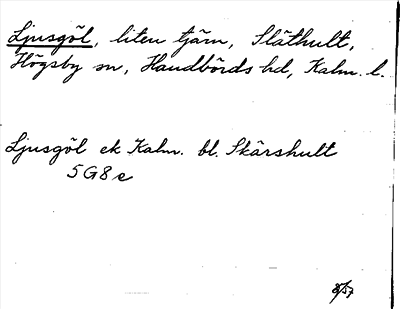 Ljusgöl, liten tjärn, Släthult,
Högsby sn, Handbörds hd, Kalm. l.
Ljusgöl ek Kalm. bl. Skärshult
5G8e
8/57